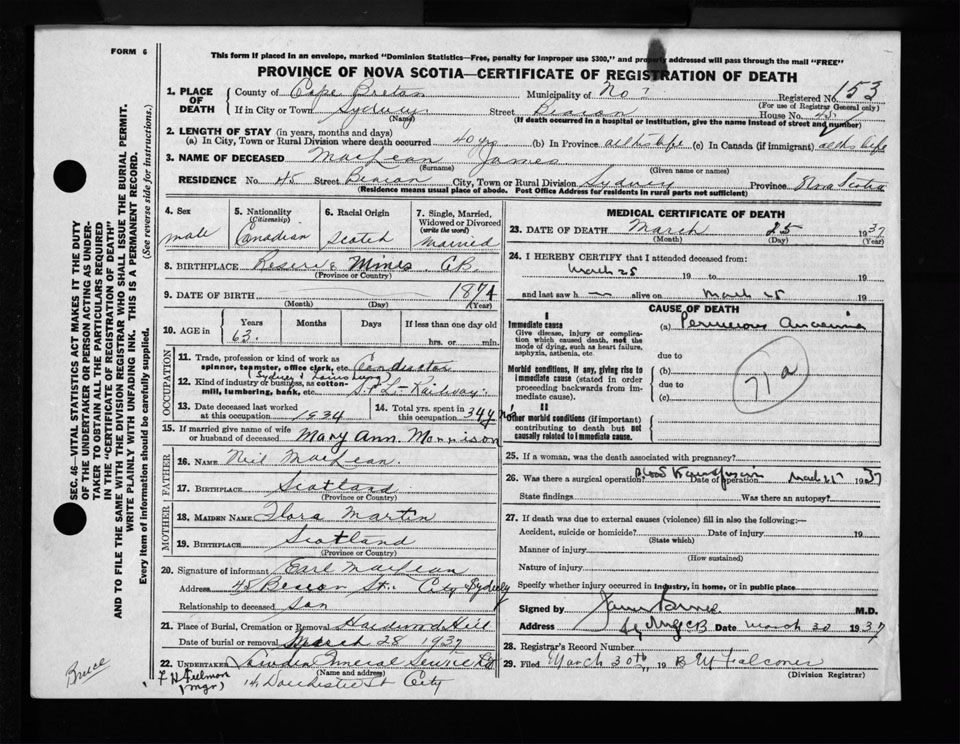 FORM 6
This form if placed in an envelope, marked "Dominion Statistics—Free, penalty for improper use $300," and properly addressed will pass through the mail "FREE"
PROVINCE OF NOVA SCOTIA—CERTIFICATE OF REGISTRATION OF DEATH
1. PLACE OF DEATH
County of Cape Breton Municipality of No 7 Registered No. 153
(For use of Registrar General only)
If in City or Town Sydney Street Beacon House No. 45
(Name) (If death occurred in a hospital or institution, give the name instead of street and number)
2. LENGTH OF STAY (in years, months and days)
(a) In City, Town or Rural Division where death occurred 40 yrs (b) In Province all his life (c) In Canada (if immigrant) all his life
3. NAME OF DECEASED MacLean James
(Surname) (Given name or names)
RESIDENCE No. 45 Street Beacon City, Town or Rural Division Sydney Province Nova Scotia
(Residence means usual place of abode. Post Office Address for residents in rural parts not sufficient)
4. Sex male
5. Nationality (Citizenship) Canadian
6. Racial Origin Scotch
7. Single, Married, Widowed or Divorced (write the word) married
8. BIRTHPLACE Reserve Mines C.B.
(Province or Country)
9. DATE OF BIRTH 1874
(Month) (Day) (Year)
10. AGE in Years Months Days If less than one day old
63. hrs. or min.
OCCUPATION
11. Trade, profession or kind of work as spinner, teamster, office clerk, etc. Conductor
12. Kind of industry or business, as cotton-mill, lumbering, bank, etc. (Sydney & Louisburg) S. & L. Railway.
13. Date deceased last worked at this occupation 1934
14. Total yrs. spent in this occupation 34 yrs
15. If married give name of wife or husband of deceased Mary Ann. Morrison
FATHER
16. NAME Neil MacLean.
17. BIRTHPLACE Scotland
(Province or Country)
MOTHER
18. MAIDEN NAME Flora Martin
19. BIRTHPLACE Scotland
(Province or Country)
20. Signature of informant Earl MacLean
Address 45 Beacon St. City Sydney
Relationship to deceased son
21. Place of Burial, Cremation or Removal Hardwood Hill
Date of burial or removal March 28 1937
22. UNDERTAKER Funeral Service Co
(Name and address)
(Mgr) 14 Dorchester St City
MEDICAL CERTIFICATE OF DEATH
23. DATE OF DEATH March 25 1937
(Month) (Day) (Year)
24. I HEREBY CERTIFY that I attended deceased from:
March 25 19 to 19
and last saw h alive on March 25 19
CAUSE OF DEATH
I
Immediate cause (a) Pernicious Anaemia
Give disease, injury or complication which caused death, not the mode of dying, such as heart failure, asphyxia, asthenia, etc
due to
Morbid conditions, if any, giving rise to immediate cause (stated in order proceeding backwards from immediate cause).
(b)
due to
(c)
71a
II
Other morbid conditions (if important) contributing to death but not causally related to immediate cause.
25. If a woman, was the death associated with pregnancy?
26. Was there a surgical operation? Blood Transfusion Date of operation March 25 1937
State findings Was there an autopsy?
27. If death was due to external causes (violence) fill in also the following:—
Accident, suicide or homicide? Date of injury 19
(State which)
Manner of injury
(How sustained)
Nature of injury
Specify whether injury occurred in industry, in home, or in public place
Signed by M.D.
Address Date March 30 1937
28. Registrar's Record Number
29. Filed March 30th, 19 B M Falconer
(Division Registrar)
SEC. 46—VITAL STATISTICS ACT MAKES IT THE DUTY
OF THE UNDERTAKER OR PERSON ACTING AS UNDERTAKER TO OBTAIN ALL THE PARTICULARS REQUIRED
IN THE "CERTIFICATE OF REGISTRATION OF DEATH"
AND TO FILE THE SAME WITH THE DIVISION REGISTRAR WHO SHALL ISSUE THE BURIAL PERMIT.
WRITE PLAINLY WITH UNFADING INK. THIS IS A PERMANENT RECORD.
Every item of information should be carefully supplied. (See reverse side for instructions.)
Bruce